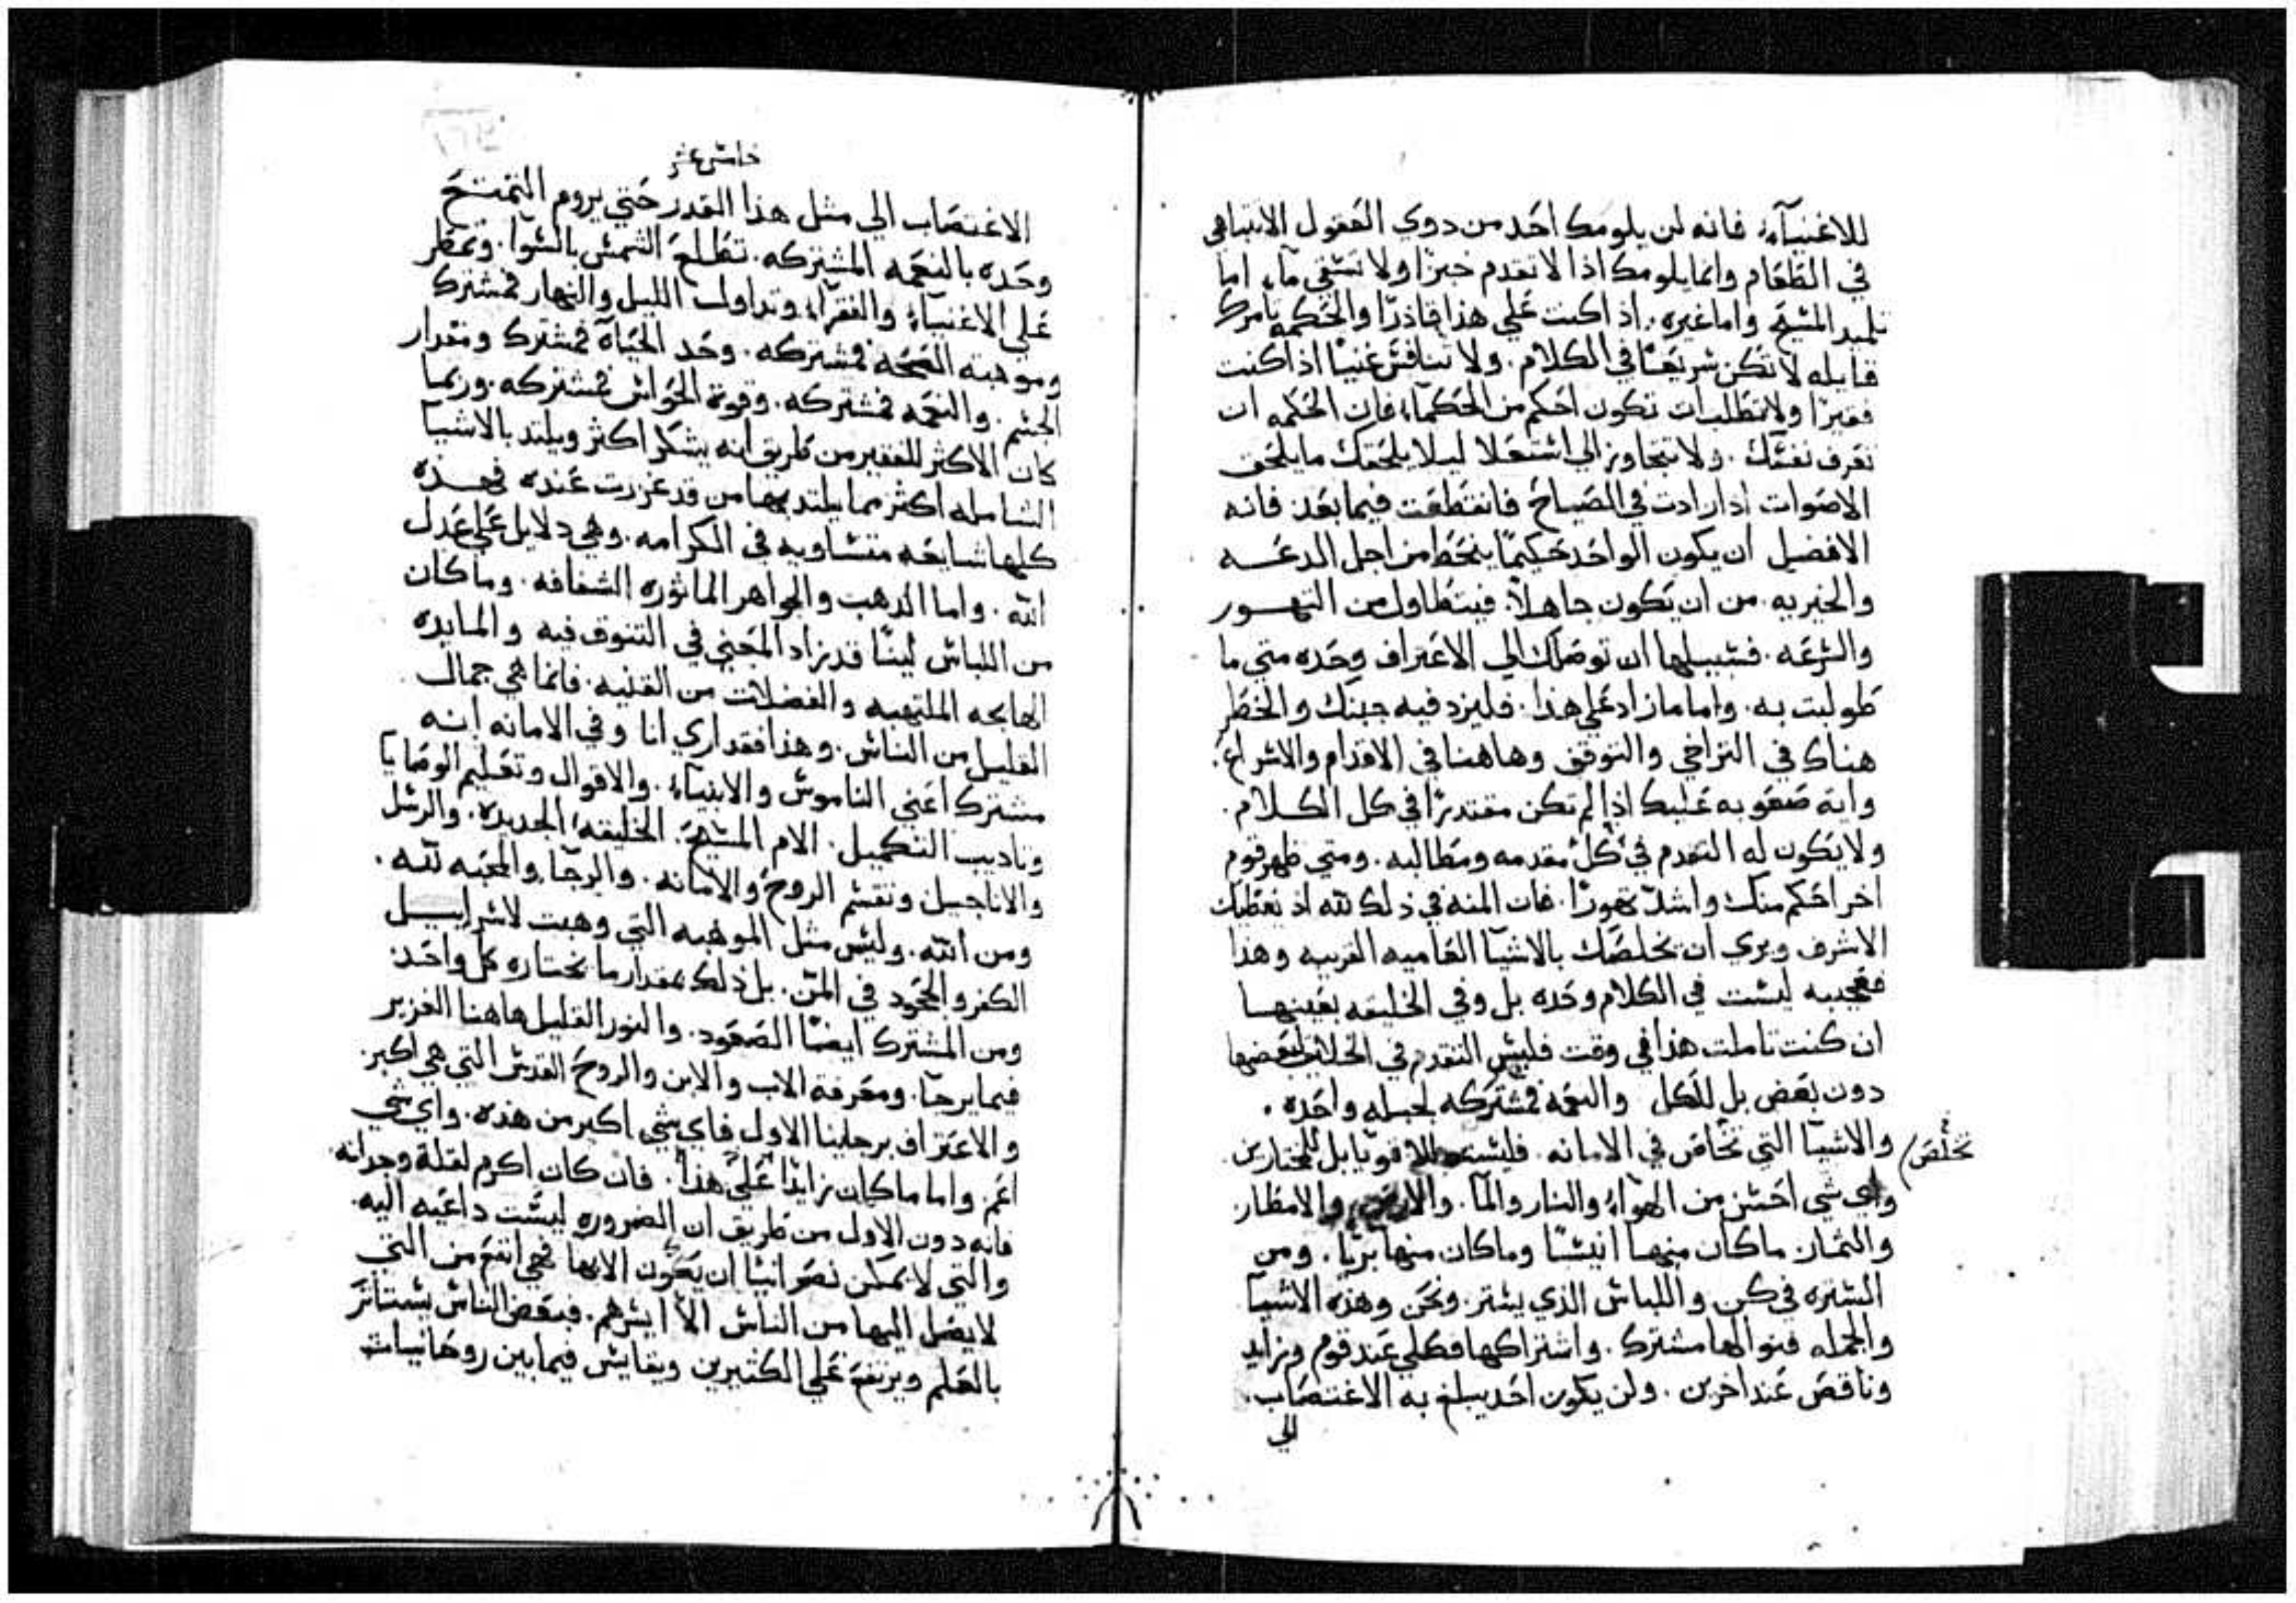 للاغنيآء. فانه لن يلومك احَد من دوي العَقول الا تباهي
في الطعَام وانما يلومك اذا لا تقدم خبزًا ولا تسَقي مآء اما
تلميد المسَيحَ واما غيره. اذ اكنت عَلي هذا قادرًا والحَكمه تامرك
قايله لا تكن سَريعًا في الكلام. ولا تنافسَ غنيًا اذا كنت
فقيرًا ولا تطلب ان تكون احَكم من الحَكمآء فان الحَكمه ان
تعَرف نفسَك. ولا تتجاوز الي اسَتعَلا ليلا يلحَقك ما يلحَق
الاصَوات ادا زادت في الصَياحَ فانقطعَت فيما بعَد فانه
الافضل ان يكون الواحَد حَكيمًا ينحَط من اجل الدعَه
والخيريه. من ان يكون جاهلاً. فيتطاول من التهور
والسَرعَه. فسَبيلها ان توصَلك الي الاعَتراف وحَده متي ما
طولبت به. واما ما زاد عَلي هذا. فليزد فيه جبنك والخطر
هناك في التراخي والتوقف وهاهنا في الاقدام والاسَراعَ.
واية صَعَوبه عَليك اذا لم تكن مقتدرًا في كل الكلام.
ولا يكون له التقدم في كل مقدمه ومطالبه. ومتي ظهر قوم
اخر احَكم منك واشد تهورًا. فان المنه في ذلك لله اذ يعَطيك
الاشرف ويري ان يخلصَك بالاشيا العَاميه القريبه وهذا
فعَجيبه ليسَت في الكلام وحَده بل وفي الخليقه بعَينها
ان كنت تاملت هذا في وقت فليسَ التقدم في الخلايق لبعَضها
دون بعَض بل للكل والنعَمه فمشتركه لجبله واحَده.
والاشيآ التي تخاص في الامانه. فليسَت للاقويا بل للمختارين
تخلُصَ
واي شي احَسَن من الهوآء والنار والمآ. والارض والامطار
والثمار ما كان منها انيسًا وما كان منها بريًا. ومن
السَتره في كن واللباسَ الذي يسَتر. ونحَن وهذه الاشيآ
والجمله فنوالها مشترك. واشتراكها فكلي عَند قوم وزايد
وناقصَ عَند اخرين. ولن يكون احَد يبلغ به الاغتصَاب.
الي
خامسَ عشر
الاغتصَاب الي مثل هذا القدر حَتي يروم التمتعَ
وحَده بالنعَمه المشتركه. تطلعَ الشمسَ بالسَوآ. وتمطر
عَلي الاغنيآء والفقرآء وتداولت الليل والنهار فمشترك
وموهبه الصَحَه فمشتركه. وحَد الحَياة فمشترك ومقدار
الجسَم. والنعَمه فمشتركه. وقوة الحَواسَ فمشتركه. وربما
كان الاكثر للفقير من طريق انه يشكر اكثر ويلتد بالاشيآ
الشامله اكثر مما يلتد بها من قد غزرت عَنده فهذه
كلها شايعَه متسَاويه في الكرامه. وهي دلايل عَلي عَدل
الله. واما الدهب والجواهر الماثوره الشفافه. وما كان
من اللباسَ لينًا قد زاد المعَني في التنوق فيه والمايده
الهايجه الملتهبه والفضلات من القنيه. فانما هي جمال
القليل من الناسَ. وهذا فقد اري انا وفي الامانه انه
مشترك اعَني الناموسَ والانبيآء. والاقوال وتعَليم الوصَايا
وتاديب التكميل. الام المسَيحَ. الخليقه الجديده. والرسَل
والاناجيل وتقسَم الروحَ والامانه. والرجا. والمحَبه لله.
ومن الله. وليسَ مثل الموهبه التي وهبت لاسَراييل
الكفر والجحَود في المنّ. بل ذلك بمقدار ما يختاره كل واحَد
ومن المشترك ايضًا الصَعَود. والنور القليل هاهنا الغزير
فيما يرجا. ومعَرفة الاب والابن والروحَ القدسَ التي هي اكبر
والاعَتراف برجلينا الاول فاي شي اكبر من هذه. واي شي
اعَم. واما ما كان زايدًا عَلي هذا. فان كان اكرم لقلة وجدانه
فانه دون الاول من طريق ان الضروره ليسَت داعَيه اليه.
والتي لا يمكن نصَرانيًا ان يكون الا بها فهي انفعَ من التي
لا يصَل اليها من الناسَ الا ايسَرهم. فبعَض الناسَ يسَتاثر
بالعَلم ويرتفعَ عَلي الكثيرين ويقايسَ فيما بين روحَانيات